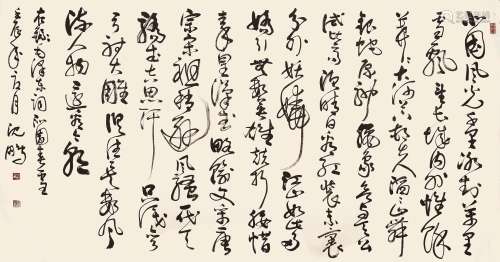 北国风光千里冰封万里
雪飘望长城内外惟余
莽莽大河上下顿失滔滔山舞
银蛇原驰蜡象欲与天公
试比高须晴日看红装素裹
分外妖娆江山如此多
娇引无数英雄竞折腰惜
秦皇汉武略输文采唐
宗宋祖稍逊风骚一代天
骄成吉思汗只识弯
弓射大雕俱往矣数风
流人物还看今朝
右录毛泽东词沁园春雪
年 月沈鹏